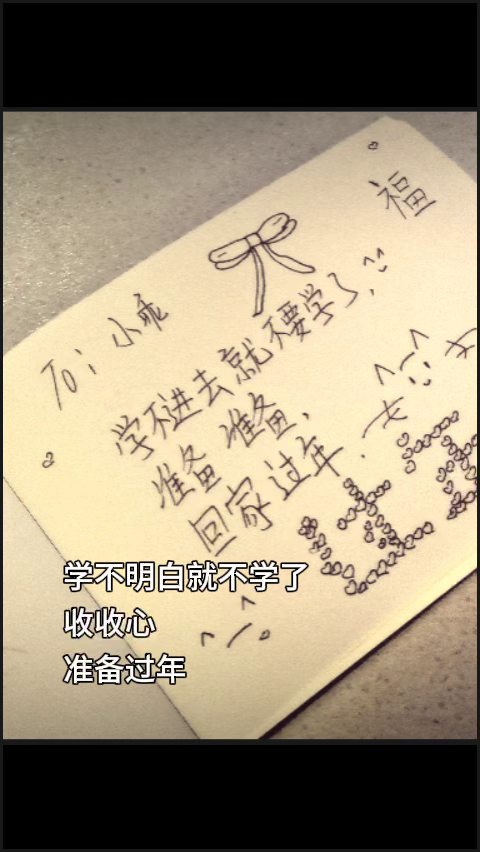 福
To：小乖
学不进去就不要学了,
准备准备,
回家过年.
学不明白就不学了
收收心
准备过年